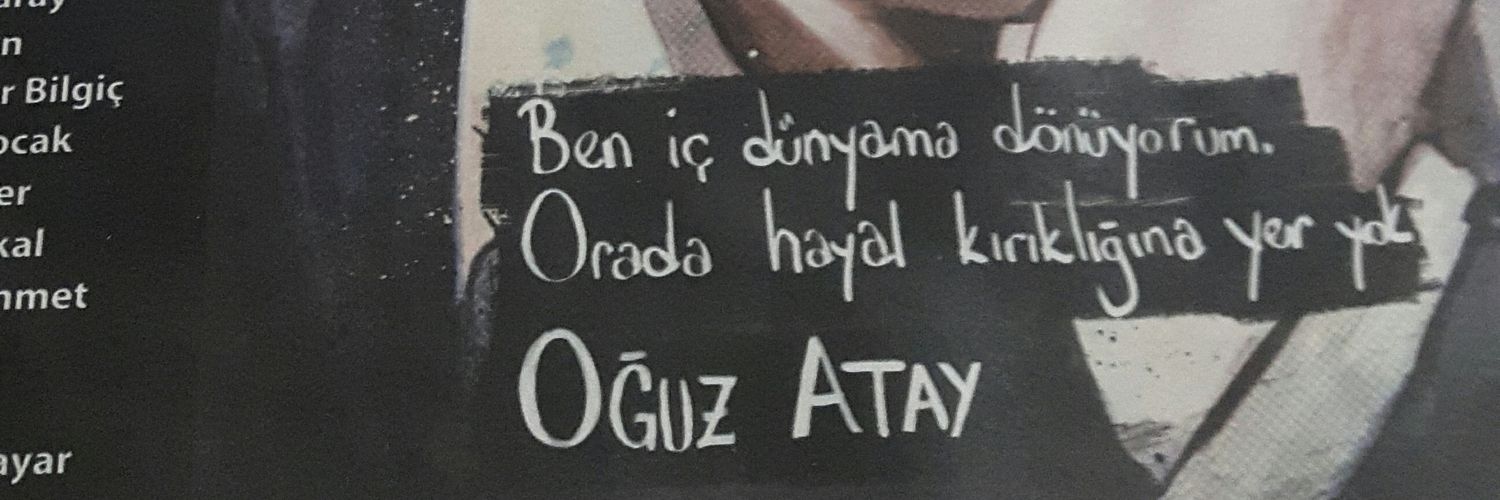 n
r Bilgiç
ocak
er
kal
hmet
ayar
Ben iç dünyama dönüyorum.
Orada hayal kırıklığına yer yok
OĞUZ ATAY